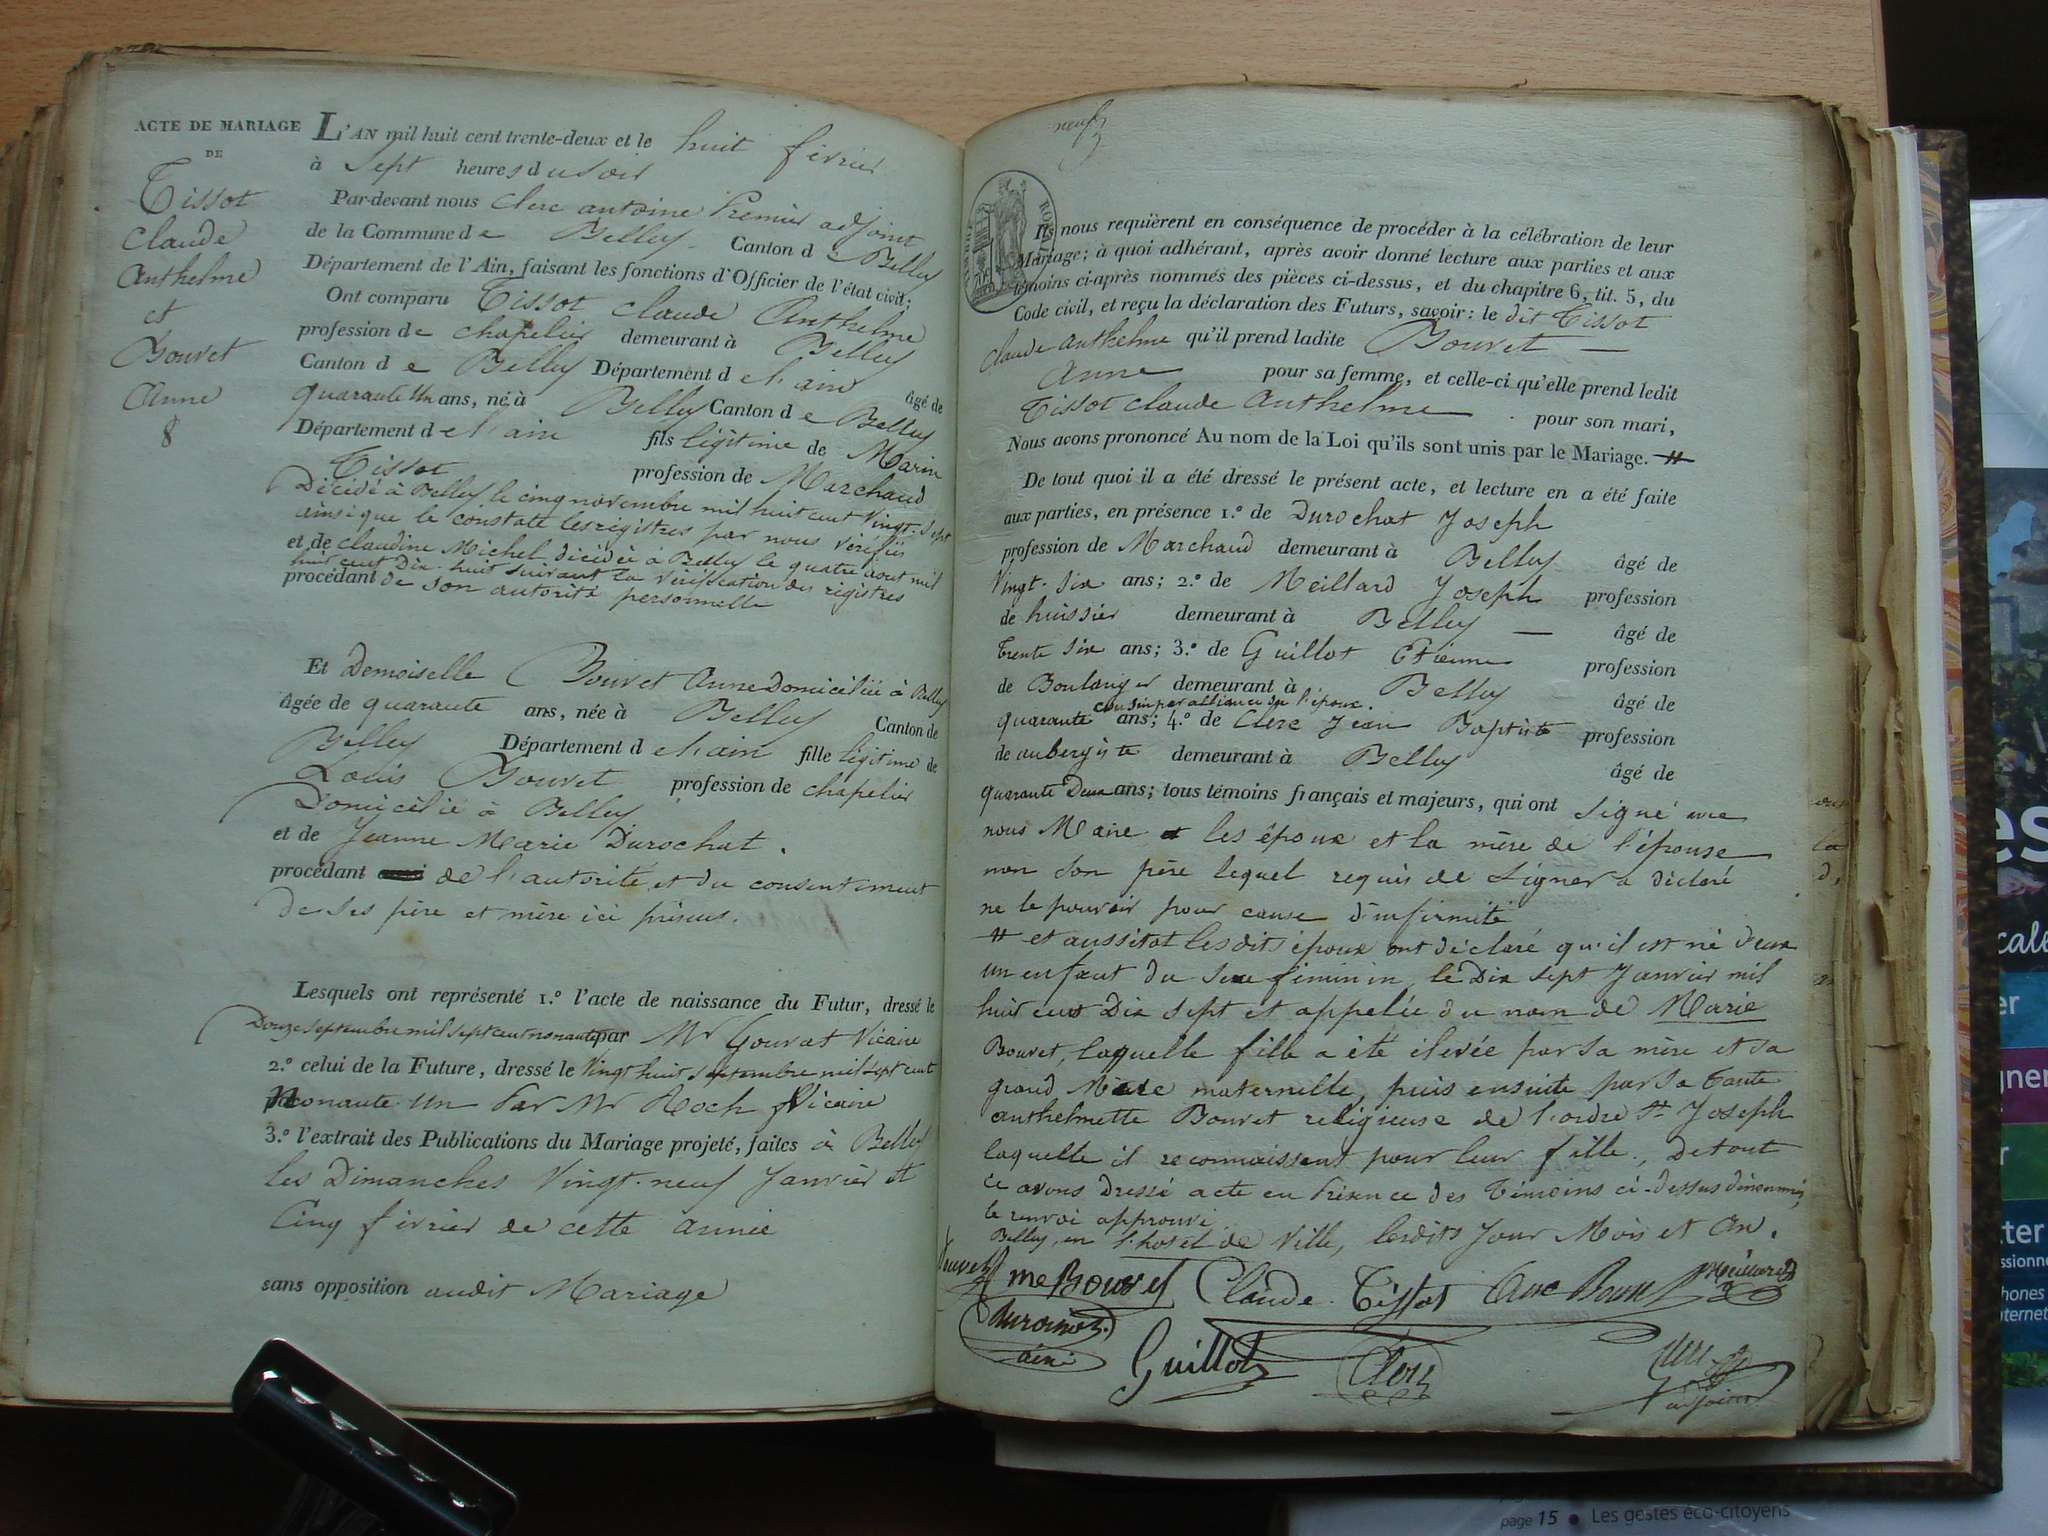 ACTE DE MARIAGE
DE
Tissot
Claude
Anthelme
et
Bouvet
Anne
8
L'AN mil huit cent trente-deux et le huit février
à Sept heures du Soir
Par-devant nous Clerc antoine Premier adjoint
de la Commune de Belley Canton de Belley
Département de l'Ain, faisant les fonctions d'Officier de l'état civil;
Ont comparu Tissot Claude Anthelme
profession de chapelier demeurant à Belley
Canton de Belley Département de l'ain âgé de
quarante un ans, né à Belley Canton de Belley
Département de l'ain fils légitime de Marin
Tissot profession de Marchand
Décédé à Belley le cinq novembre mil huit cent vingt-sept
ainsi que le constate les registres par nous vérifiés
et de claudine Michel décédée à Belley le quatre aout mil
huit cent Dix-huit suivant la vérification des registres
procédant de son autorité personnelle
Et Demoiselle Bouvet Anne Domiciliée à Belley
âgée de quarante ans, née à Belley Canton de
Belley Département de l'ain fille légitime de
Louis Bouvet profession de chapelier
Domicilié à Belley
et de Jeanne Marie Durochat.
procédant de l'autorité et du consentement
de ses père et mère ici présens.
Lesquels ont représenté 1.º l'acte de naissance du Futur, dressé le
Douze Septembre mil sept cent nonante par Mr Gouvat Vicaire
2.º celui de la Future, dressé le Vingt huit Septembre mil sept cent
nonante un Par Mr Roch Vicaire
3.º l'extrait des Publications du Mariage projeté, faites à Belley
les Dimanches Vingt-neuf Janvier et
Cinq février de cette année
sans opposition audit Mariage
neuf
TIMBRE ROYAL
Ils nous requièrent en conséquence de procéder à la célébration de leur
Mariage; à quoi adhérant, après avoir donné lecture aux parties et aux
témoins ci-après nommés des pièces ci-dessus, et du chapitre 6, tit. 5, du
Code civil, et reçu la déclaration des Futurs, savoir: le dit Tissot
Claude Anthelme qu'il prend ladite Bouvet
Anne pour sa femme, et celle-ci qu'elle prend ledit
Tissot Claude Anthelme pour son mari,
Nous avons prononcé Au nom de la Loi qu'ils sont unis par le Mariage. #
De tout quoi il a été dressé le présent acte, et lecture en a été faite
aux parties, en présence 1.º de Durochat Joseph
profession de Marchand demeurant à Belley âgé de
Vingt-six ans; 2.º de Meillard Joseph profession
de huissier demeurant à Belley — âgé de
trente six ans; 3.º de Guillot Etienne profession
de Boulanger demeurant à Belley âgé de
cousin par alliance de l'époux.
quarante ans; 4.º de Clerc Jean Baptiste profession
de aubergiste demeurant à Belley âgé de
quarante Deux ans; tous témoins français et majeurs, qui ont Signé avec
nous Maire les époux et la mère de l'épouse
non son père lequel requis de Signer a déclaré
ne le pouvoir pour cause d'infirmité
# et aussitot lesdits époux ont déclaré qu'il est né d'eux
un enfant du Sexe féminin, le Dix sept Janvier mil
huit cent Dix sept et appelée du nom de Marie
Bouvet, laquelle fille a été élevée par sa mère et sa
grand Mère maternelle, puis ensuite par sa tante
anthelmette Bouvet religieuse de l'ordre St Joseph
laquelle il reconnaissent pour leur fille, De tout
ce avons Dressé acte en Présence des Témoins ci-dessus dénommés,
le renvoi approuvé
Belley, en l'hotel de Ville, lesdits Jour Mois et An.
me Bouvet Claude Tissot Ane Bouvet Meillard
durochat
ainé Guillot Clerc Clerc
adjoint
page 15 • Les gestes éco-citoyens